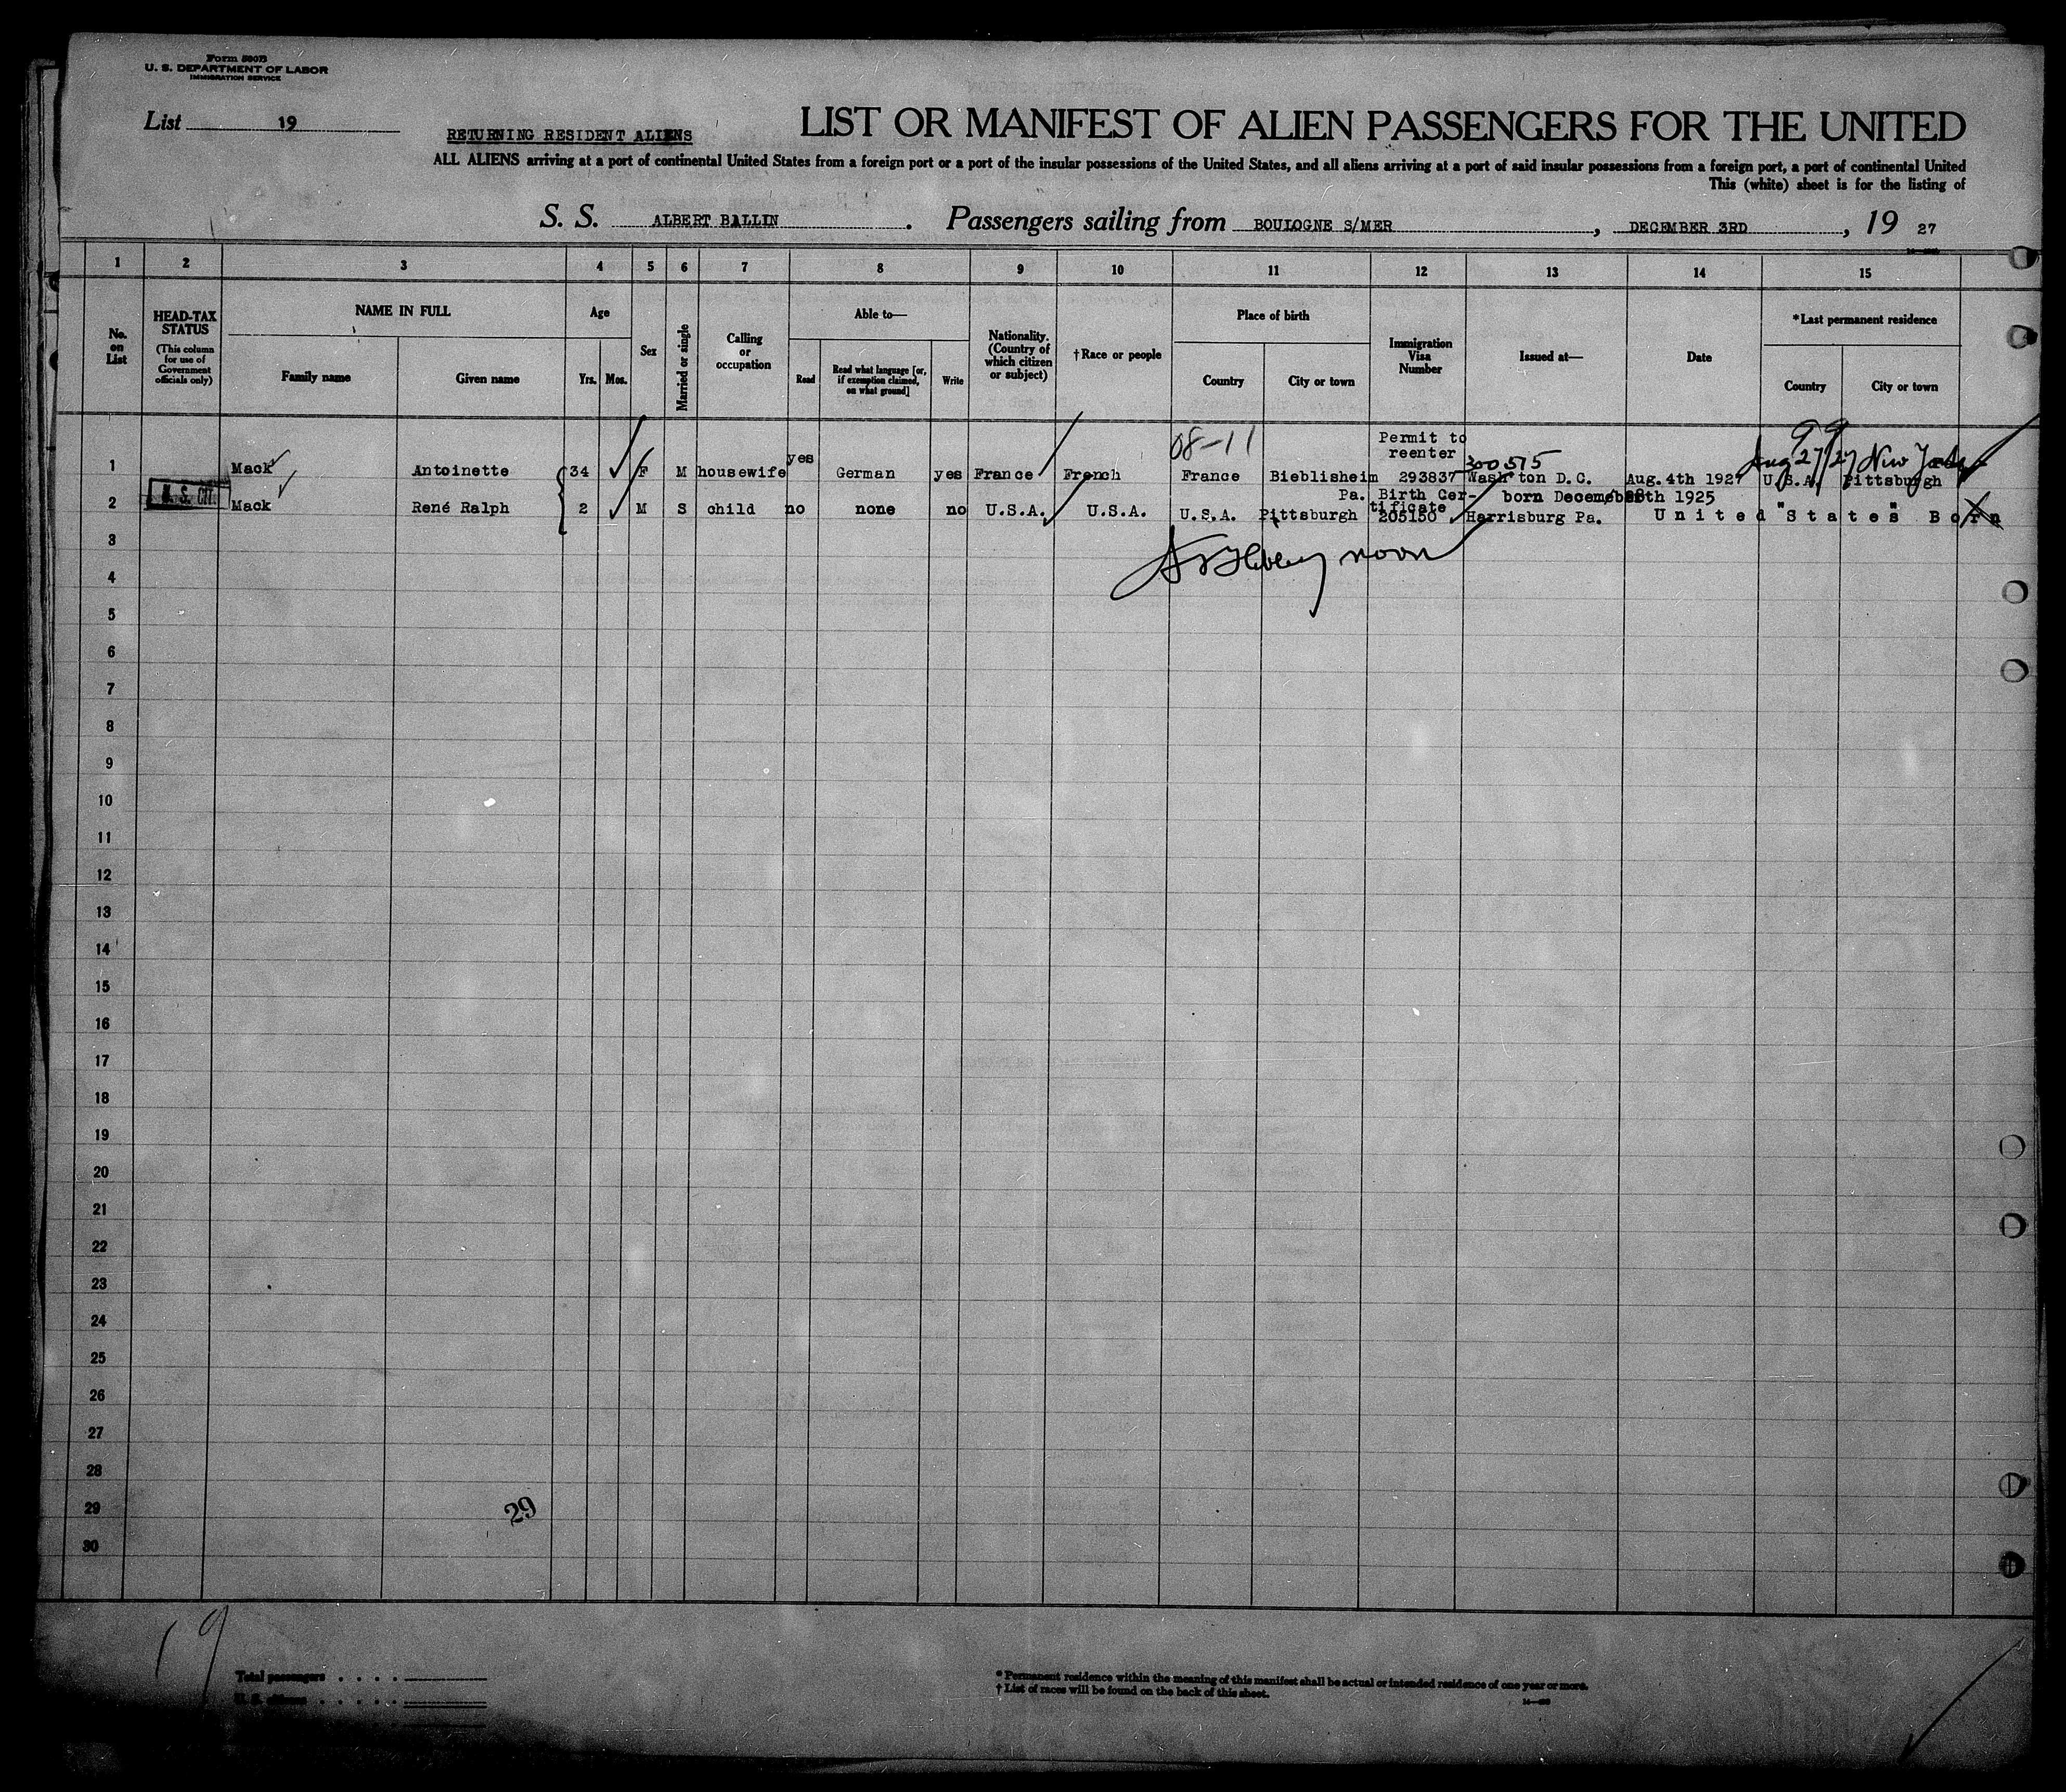 Form 500B
U. S. DEPARTMENT OF LABOR
IMMIGRATION SERVICE
List 19
RETURNING RESIDENT ALIENS
LIST OR MANIFEST OF ALIEN PASSENGERS FOR THE UNITED
ALL ALIENS arriving at a port of continental United States from a foreign port or a port of the insular possessions of the United States, and all aliens arriving at a port of said insular possessions from a foreign port, a port of continental United
This (white) sheet is for the listing of
S. S. ALBERT BALLIN . Passengers sailing from BOULOGNE S/MER , DECEMBER 3RD , 19 27
1 2 3 4 5 6 7 8 9 10 11 12 13 14 15
No. on List
HEAD-TAX STATUS
(This column for use of Government officials only)
NAME IN FULL
Family name
Given name
Age
Yrs.
Mos.
Sex
Married or single
Calling or occupation
Able to—
Read
Read what language [or, if exemption claimed, on what ground]
Write
Nationality. (Country of which citizen or subject)
† Race or people
Place of birth
Country
City or town
Immigration Visa Number
Issued at—
Date
*Last permanent residence
Country
City or town
08-11
Permit to reenter
300515
Aug 27/27 New York
1 Mack Antoinette 34 F M housewife yes German yes France French France Bieblisheim 293837 Wash'ton D.C. Aug.4th 1927 U.S.A. Pittsburgh
U. S. CIT.
2 Mack René Ralph 2 M S child no none no U.S.A. U.S.A. U.S.A. Pittsburgh Pa. Birth Certificate 205150 Harrisburg Pa. born December 1925
"United States" Born
noon
3
4
5
6
7
8
9
10
11
12
13
14
15
16
17
18
19
20
21
22
23
24
25
26
27
28
29
30
29
19
Total passengers . . . .
U. S. citizens . . . . .
* Permanent residence within the meaning of this manifest shall be actual or intended residence of one year or more.
† List of races will be found on the back of this sheet.